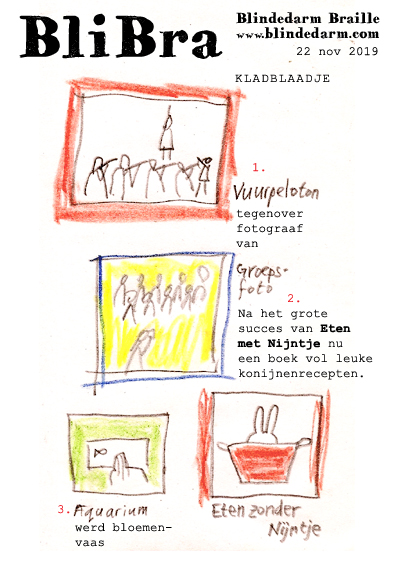 BliBra
Blindedarm Braille
www.blindedarm.com
22 nov 2019
KLADBLAADJE
1.
Vuurpeloton
tegenover
fotograaf
van
Groeps-
foto
2.
Na het grote
succes van Eten
met Nijntje nu
een boek vol leuke
konijnenrecepten.
3. Aquarium
werd bloemen-
vaas
Eten zonder
Nijntje